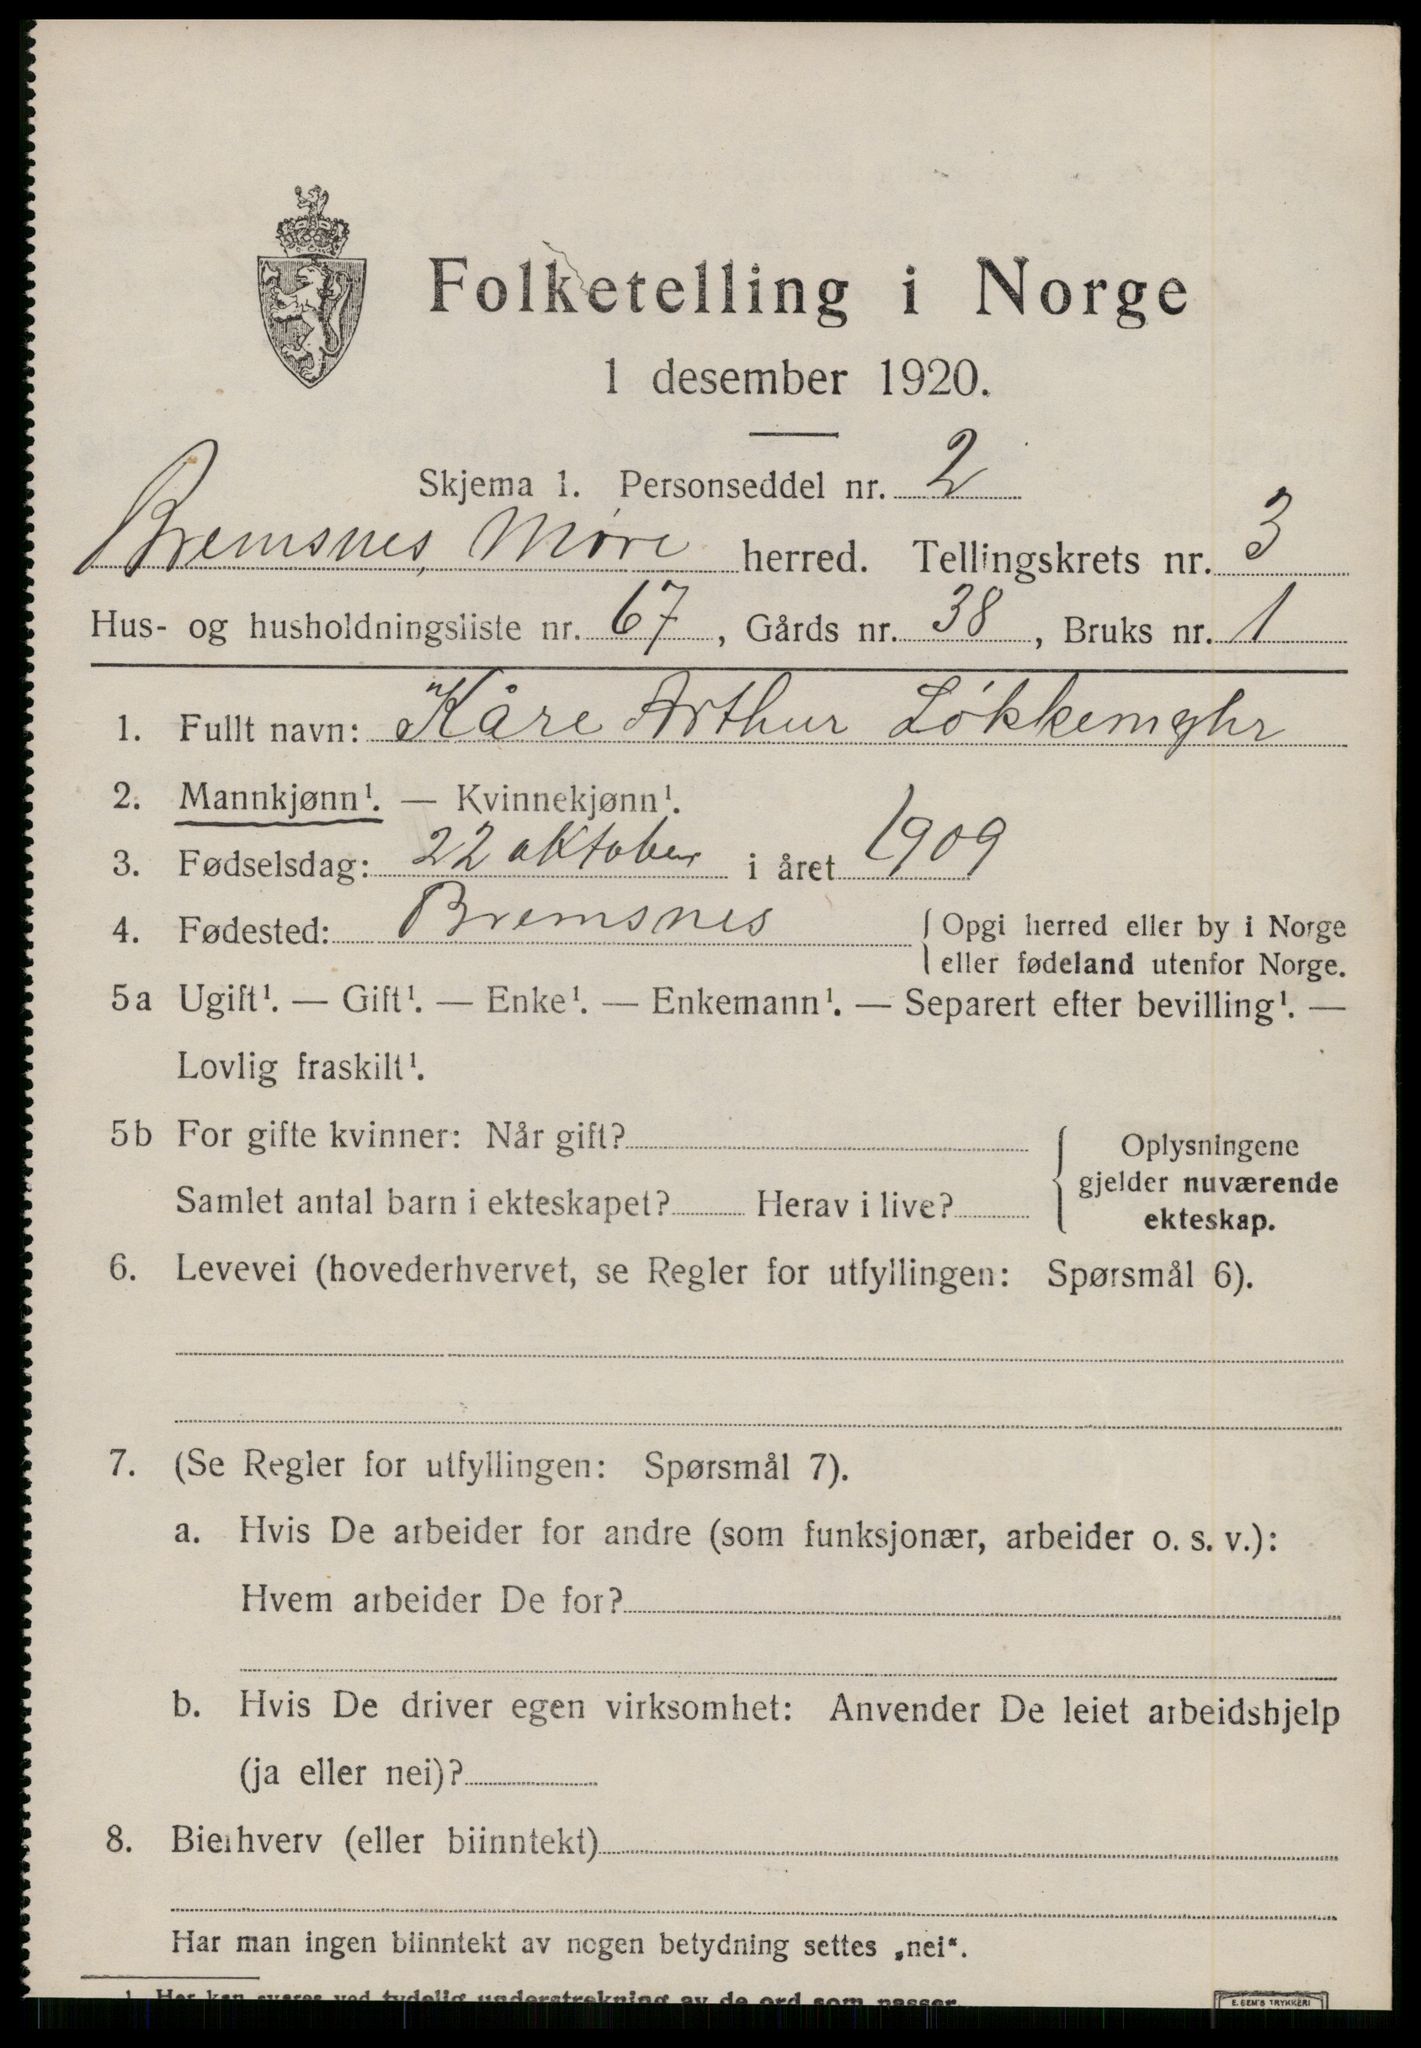 Folketelling i Norge
1 desember 1920.
Skjema 1. Personseddel nr. 2
Bremsnes, Møre herred. Tellingskrets nr. 3
Hus- og husholdningsliste nr. 67, Gårds nr. 38, Bruks nr. 1
1. Fullt navn: Kåre Arthur Løkkemyhr
2. Mannkjønn¹. — Kvinnekjønn¹.
3. Fødselsdag: 22 oktober i året 1909
4. Fødested: Bremsnes { Opgi herred eller by i Norge
eller fødeland utenfor Norge.
5a Ugift¹. — Gift¹. — Enke¹. — Enkemann¹. — Separert efter bevilling¹. —
Lovlig fraskilt¹.
5b For gifte kvinner: Når gift?
Samlet antal barn i ekteskapet? Herav i live?
Oplysningene
gjelder nuværende
ekteskap.
6. Levevei (hovederhvervet, se Regler for utfyllingen: Spørsmål 6).
7. (Se Regler for utfyllingen: Spørsmål 7).
a. Hvis De arbeider for andre (som funksjonær, arbeider o. s. v.):
Hvem arbeider De for?
b. Hvis De driver egen virksomhet: Anvender De leiet arbeidshjelp
(ja eller nei)?
8. Bierhverv (eller biinntekt)
Har man ingen biinntekt av nogen betydning settes „nei".
1. Her kan svares ved tydelig understrekning av de ord som passer.
E. SEM'S TRYKKERI